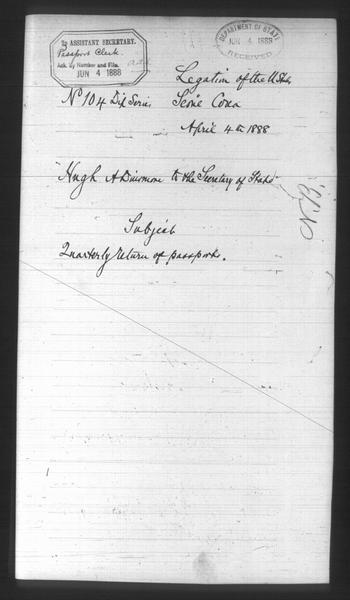 2d ASSISTANT SECRETARY.
Passport Clerk.
Ack. by Number and File.
JUN 4 1888
DEPARTMENT OF STATE
JUN 4 1888
RECEIVED
Legation of the U States
No 104 Dip Series Seoul Corea
April 4th 1888
Hugh A Dinsmore to the Secretary of State
N.B.
Subject
Quarterly return of passports.